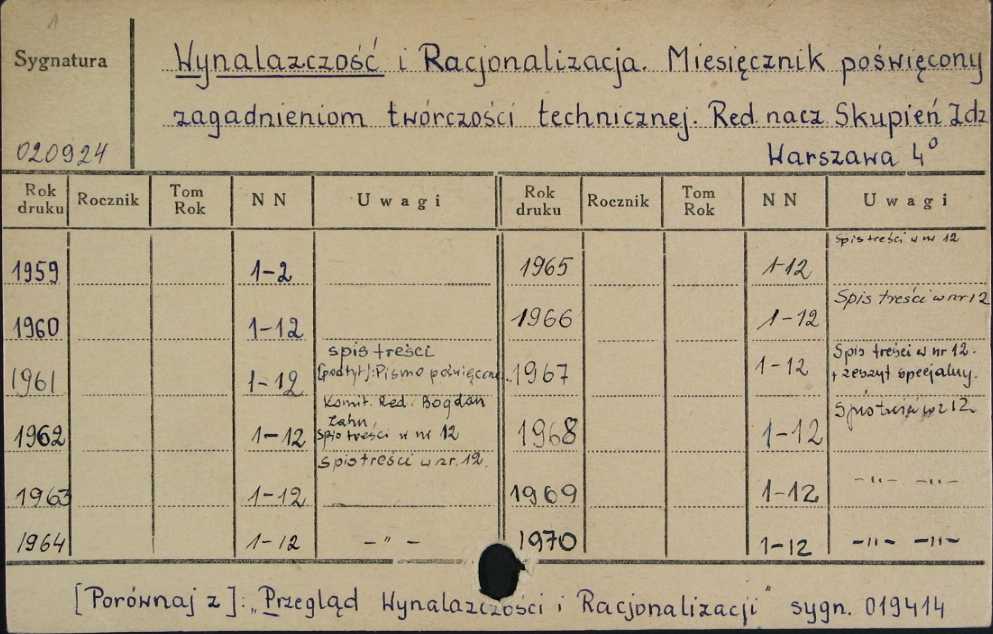 1
Sygnatura
020924
Wynalazczość i Racjonalizacja. Miesięcznik poświęcony
zagadnieniom twórczości technicznej. Red. nacz Skupień Zdz
Warszawa 4°
Rok druku Rocznik Tom Rok N N Uwagi Rok druku Rocznik Tom Rok N N Uwagi
1959 1-2
1960 1-12
1961 1-12 spis treści
[podtyt]: Pismo poświęcone..
1962 1-12 Komit. Red. Bogdan
Zahn
Spis treści w nr 12
1963 1-12 Spis treści w nr. 12.
1964 1-12 - " -
1965 1-12 Spis treści w nr 12
1966 1-12 Spis treści w nr 12
1967 1-12 Spis treści w nr 12.
+ zeszyt specjalny.
1968 1-12 Spis treści w nr 12
1969 1-12 - " - - " -
1970 1-12 - " - - " -
[Porównaj z]: „Przegląd Wynalazczości i Racjonalizacji" sygn. 019414